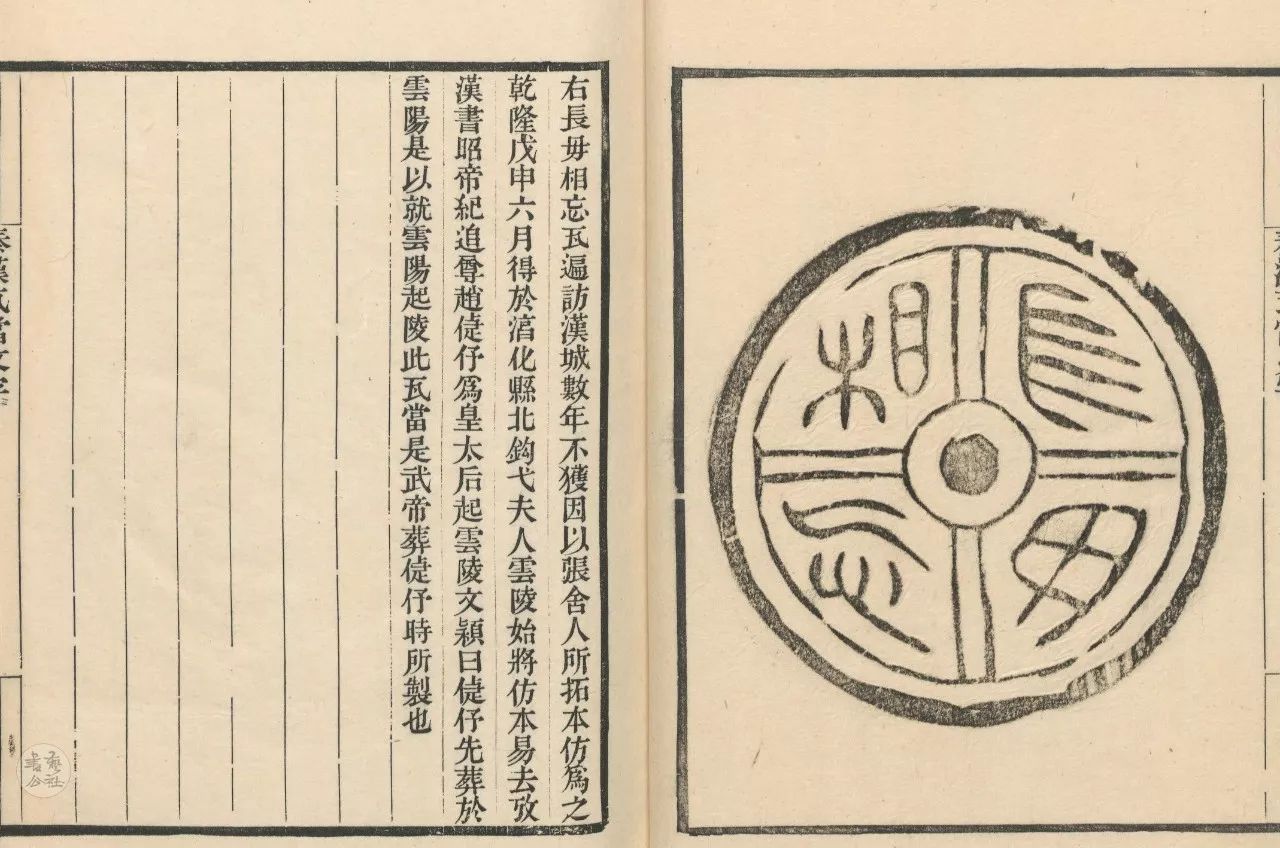 長毋
相忘
右長毋相忘瓦遍訪漢城數年不獲因以張舍人所拓本仿爲之
乾隆戊申六月得於湻化縣北鈎弋夫人雲陵始將仿本易去攷
漢書昭帝紀追尊趙倢伃爲皇太后起雲陵文穎曰倢伃先葬於
雲陽是以就雲陽起陵此瓦當是武帝葬倢伃時所製也
秦漢瓦當文字